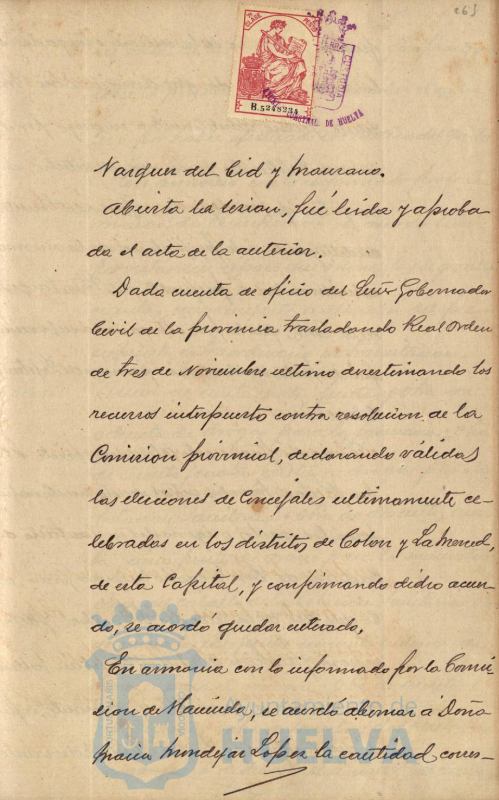 263
CLASE
PESETA
B.5248234
CUSTODIA
DE HUELVA
Vazquez del Cid y Manzano.
Abierta la sesion, fué leida y aproba
da el acta de la anterior.
Dada cuenta de oficio del Señor Gobernador
Civil de la provincia trasladando Real Orden
de tres de Noviembre ultimo desestimando los
recursos interpuesto contra resolucion de la
Comision provincial, declarando válidas
las elecciones de Concejales ultimamente ce-
lebradas en los distritos de Colon y La Merced,
de esta Capital, y confirmando dicho acuer-
do, se acordó quedar enterado.
En armonia con lo informado por la Comi-
sion de Hacienda, se acordó abonar á Doña
Maria Mondejar Lopez la cantidad corres-
Ayuntamiento de
HUELVA